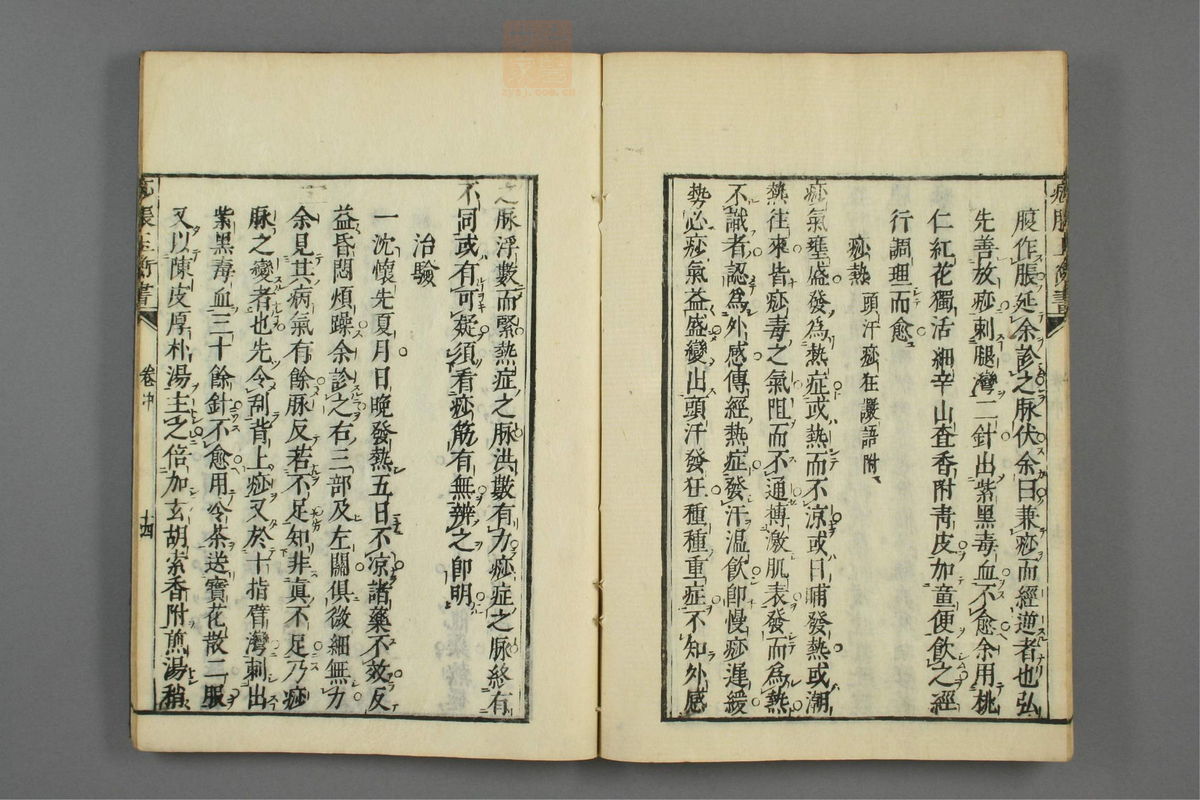 腹作脹延余診之脉伏余曰兼痧而經逆者也弘
先善放痧刺腿彎二針出紫黑毒血不愈余用桃
仁紅花獨活細辛山査香附靑皮加童便飲之經
行調理而愈
痧熱 頭汗痧狂讝語附
痧氣壅盛發為熱症或熱而不凉或日晡發熱或潮
熱往來皆痧毒之氣阻而不通搏激肌表發而為熱
不識者認為外感傳經熱症發汗温飲卽慢痧遲緩
勢必痧氣益盛變出頭汗發狂種種重症不知外感
之脉浮數而緊熱症之脉洪數有力痧症之脉終有
不同或有可疑須看痧筋有無辨之卽明
治驗
一沈懷先夏月日晚發熱五日不凉諸藥不效反
益昏悶煩躁余診之右三部及左關俱微細無力
余見其病氣有餘脉反若不足知非真不足乃痧
脉之變者也先令刮背上痧又於十指臂灣刺出
紫黑毒血三十餘針不愈用冷茶送寳花散二服
又以陳皮厚朴湯主之倍加玄胡索香附煎湯稍
脹玉衡書 卷中 十四